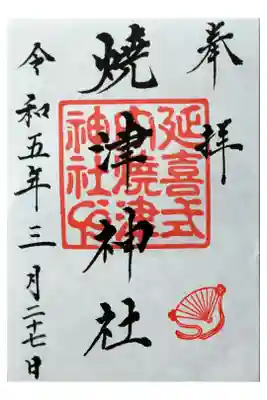 奉拝
焼津神社
令和五年三月二十七日
延喜式
内焼津
神社印